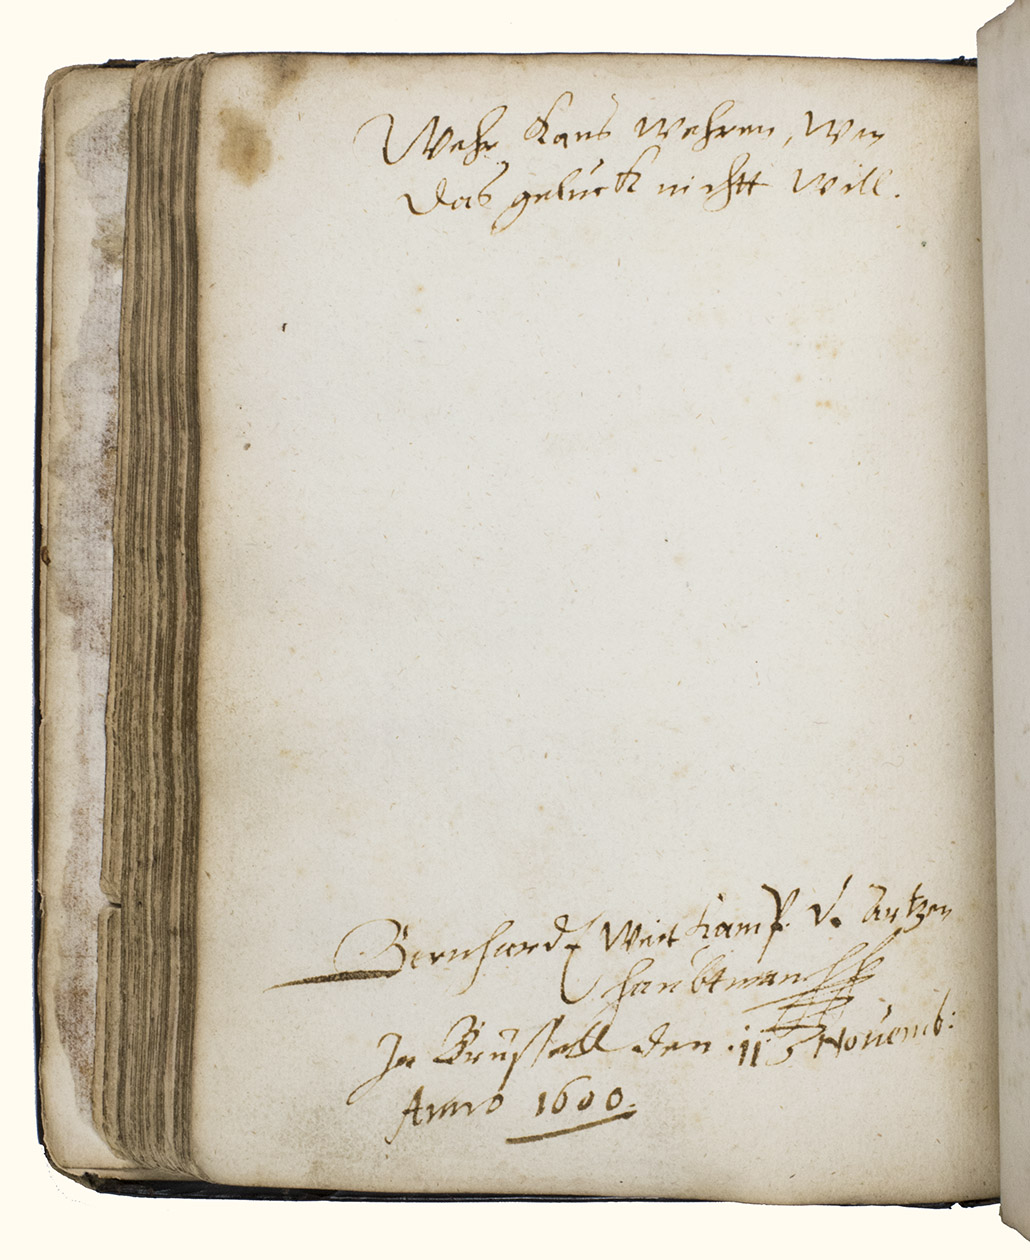 Wehr kans wehren, wen
das geluck nichtt will.
Bernhardt Weitkamp v. Artzen
haubtman
In Brüssell den .11. Nouemb:
Anno 1600.